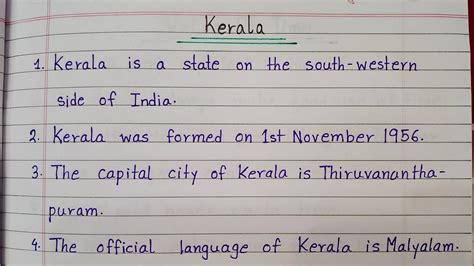 Kerala
1. Kerala is a state on the south-western
side of India.
2. Kerala was formed on 1st November 1956.
3. The capital city of Kerala is Thiruvanantha-
puram.
4. The official language of Kerala is Malyalam.